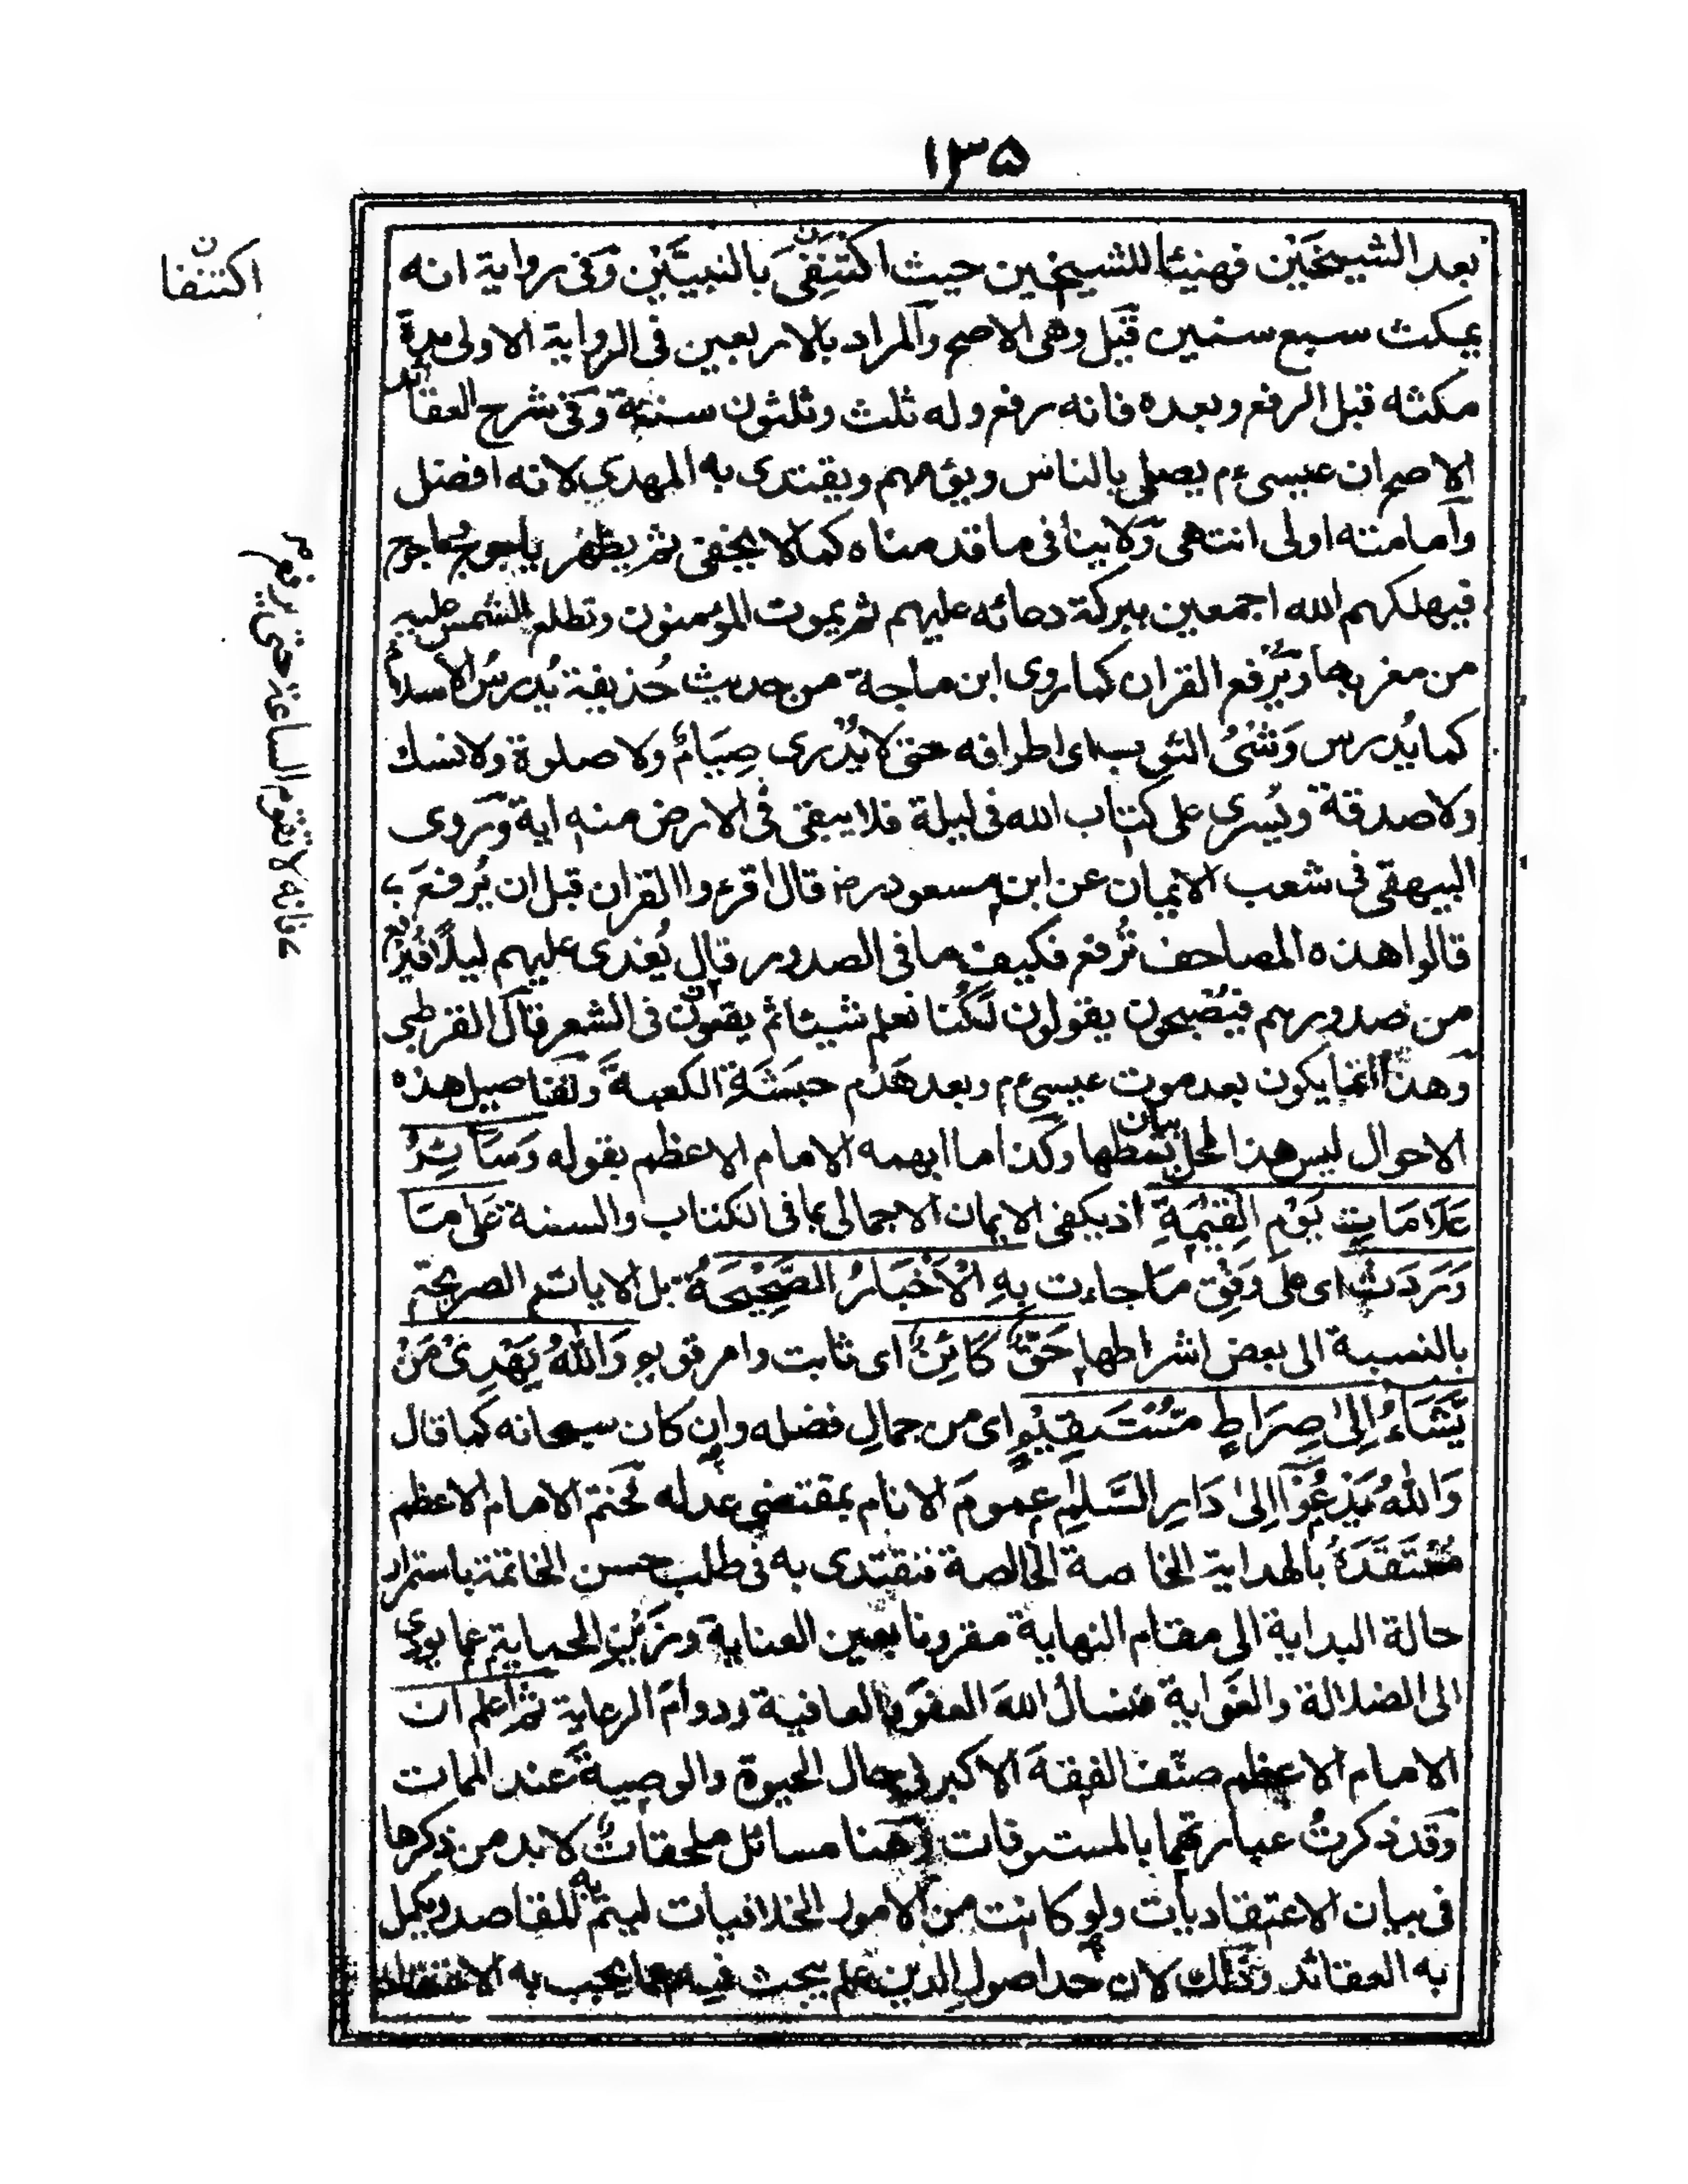 ١٣٥
بعد الشيخَيْن فهنيئا للشيخين حيث اكتنِفىَ بالنبيّيْن وفى رواية انه
يمكث سبع سنين قيل وهى الاصح والمراد بالاربعين فى الرواية الاولى مدة
مكثه قبل الرفع وبعده فانه رفع وله ثلث وثلثون سنة وفى شرح العقائد
الاصح ان عيسى ءم يصلى بالناس ويؤمهم ويقتدى به المهدى لانه افضل
وامامته اولى انتهى ولا ينافى ما قدمناه كما لا يخفى ثم يظهر ياجوج وماجوج
فيهلكهم الله اجمعين ببركة دعائه عليهم ثم يموت المؤمنون وتطلع الشمس
من مغربها ويُرفع القران كما روى ابن ماجة من حديث حُذيفة يُدرسُ الاسلام
كما يُدرس وَشْىُ الثوب اى اطرافه حتى لا يُدْرى صِيَامٌ ولا صلوة ولا نسك
ولا صدقة ويُسرى على كتاب الله فى ليلة فلا يبقى فى الارض منه اية وروى
البيهقى فى شعب الايمان عن ابن مسعود رض قال اقرءوا القران قبل ان يُرفعَ
قالوا هذه المصاحف تُرفع فكيف ما فى الصدور قال يُغدى عليهم ليلًا فيُرفع
من صدورهم فيُصْبحون يقولون لكُنا نعلم شيئا ثم يقعون فى الشعر قال القرطبى
وهذا انما يكون بعد موت عيسى ءم وبعد هَدْم حبَشَةِ الكعبةَ وتفاصيل هذه
الاحوال ليس هذا المحل بيان بسطها وكذا ما ابهمه الامام الاعظم بقوله وَسَائِرُ
عَلَامَاتِ يَوْمِ الْقِيٰمَةِ اذ يكفى الايمان الاجمالى بما فى الكتاب والسنة عَلىٰ مَا
وَرَدَتْ اى على وَفْقِ ما جاءت بِهِ الْاَخْبَارُ الصَّحِيْحَةُ بل الايات الصريحة
بالنسبة الى بعض اشراطها حَقٌّ كَائِنٌ اى ثابت وامر قوى وَاللهُ يَهْدِىْ مَنْ
يَّشَاءُ اِلىٰ صِرَاطٍ مُّسْتَقِيْمٍ اى من جمالِ فضله وان كان سبحانه كما قال
وَاللهُ يَدْعُوْٓا اِلىٰ دَارِ السَّلٰمِ عمومَ الانام بمقتضى عدله فختم الامام الاعظم
مُعْتَقَدَهُ بالهداية الخاصة الخالصة فنقتدى به فى طلب حسن الخاتمة باستمرار
حالة البداية الى مقام النهاية مقرونا بعين العناية وزَيْنِ الحماية عما يؤدى
الى الضلالة والغَواية فنسالُ اللهَ العفوَ والعافية ودوامَ الرعاية ثم اعلم ان
الامام الاعظم صنّف الفقهَ الاكبر فى حال الحيوة والوصيةَ عند الممات
وقد ذكرتُ عبارتهما بالمستوفات وههنا مسائل ملحقاتٌ لا بد من ذكرها
فى بيان الاعتقاديات ولو كانت من الامور الخلافيات ليتم به المقاصد ويكمل
به العقائد وذلك لان حد اصول الدين علم يبحث فيه عما يجب به الاعتقاد
اكتنفا
ن
عه فانه لا تقوم الساعة حتى يرفع م